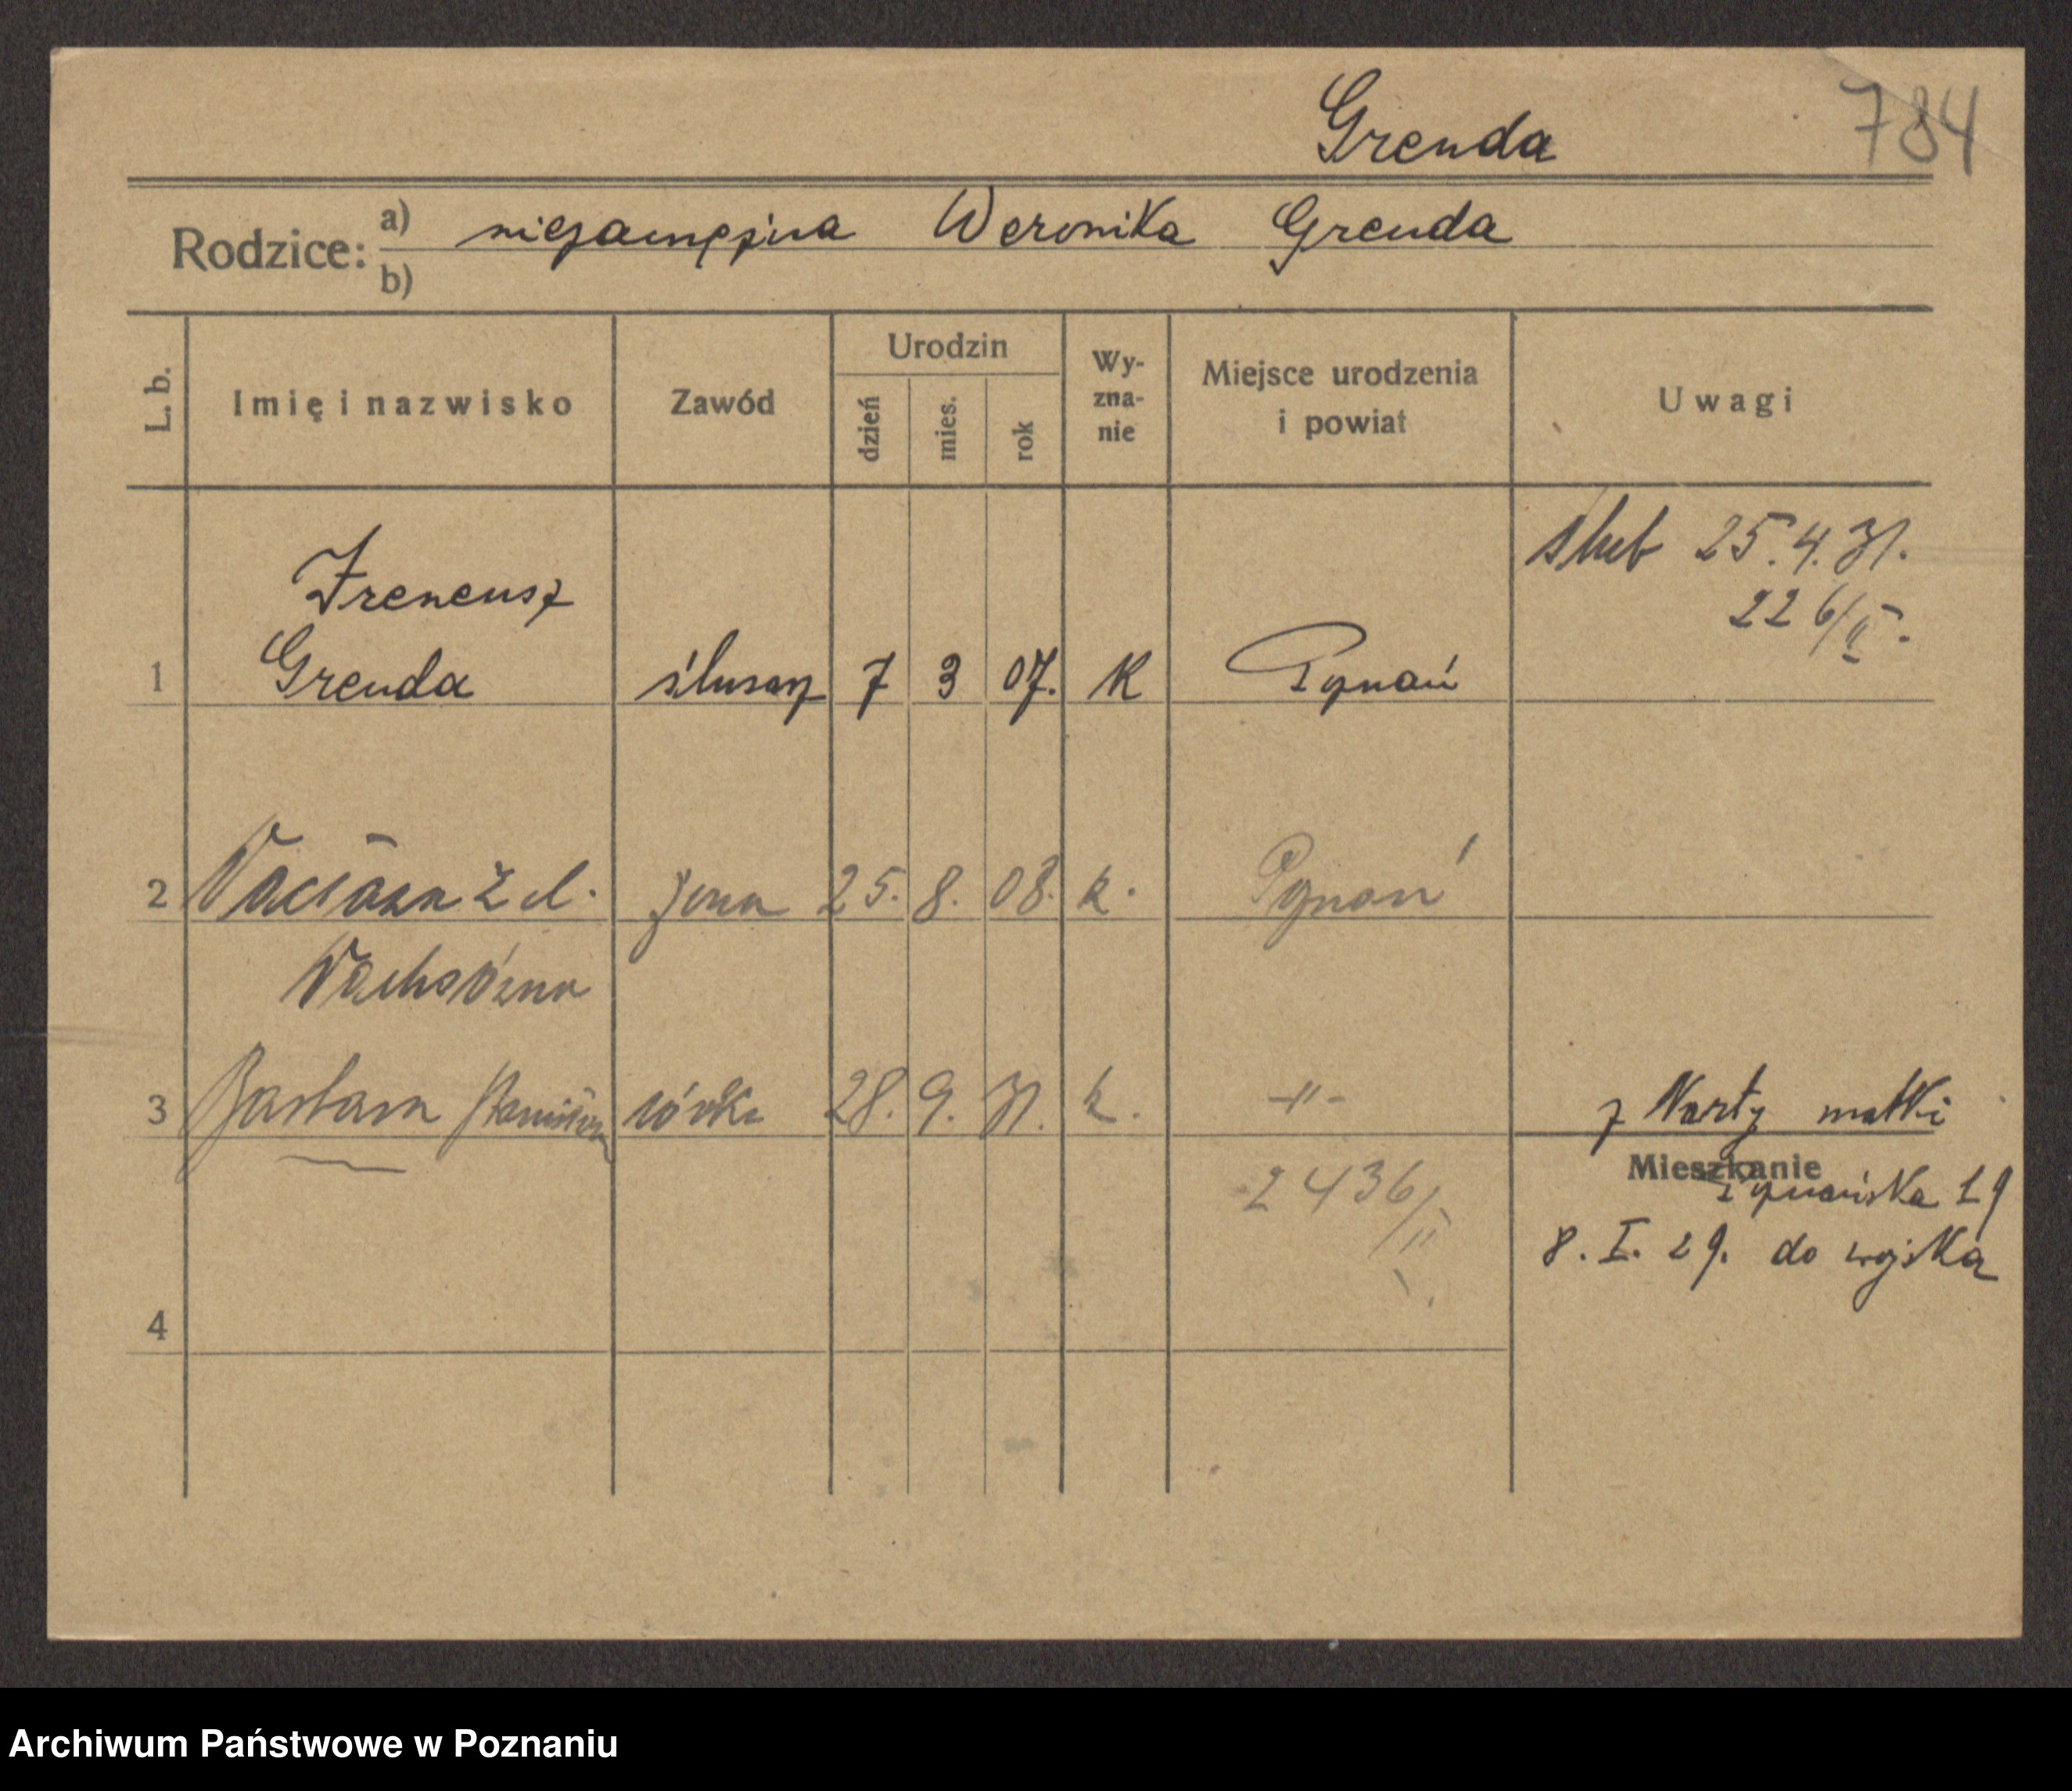 Grenda 784
Rodzice: a) niezamężna Weronika Grenda
b)
L. b. Imię i nazwisko Zawód Urodzin dzień mies. rok Wy-zna-nie Miejsce urodzenia i powiat Uwagi
ślub 25.4.31.
226/II.
Ireneusz
1 Grenda ślusarz 7 3 07. K Poznań
2 z d. żona 25. 8. 08. k. Poznań
3 Barbara córka 28. 9. 31. k. -"-
z Karty matki
Mieszkanie
Poznańska 19
2436/II
8. I. 29. do wojska
4
Archiwum Państwowe w Poznaniu